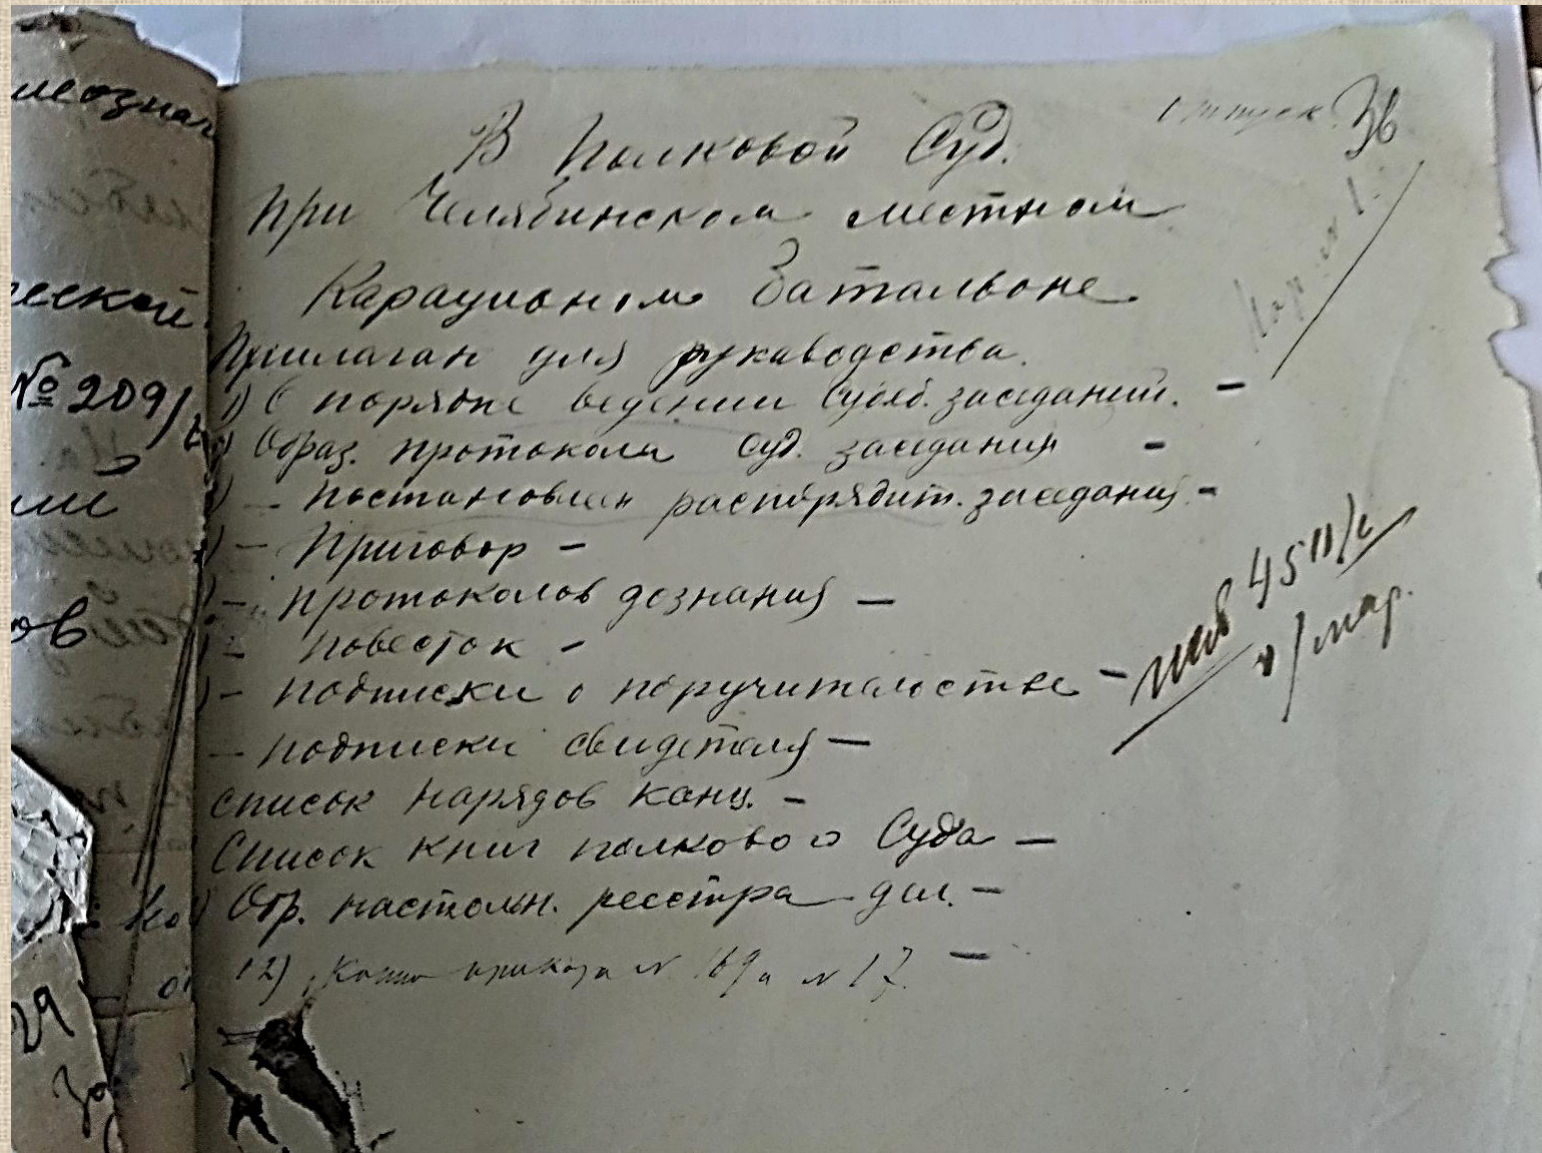 отпуск 36
В Полковой Суд.
При Челябинском местном
Караульном Батальоне
Прилагаю для руководства.
1) О порядке ведении судеб. заседаний. -
Образ. протокола суд. заседания -
) - постановлен распорядит. заседания -
) - Приговор -
) - протоколов дознания -
) - повесток -
) - подписки о поручительстве -
- подписки свидетеля -
список нарядов канц. -
Список книг полкового Суда -
) Обр. настольн. реестра дел. -
12) Копию приказа № 169 и № 17. -
45 11/с
/мар.
леознач
еской
№ 209/
ии
ов
29